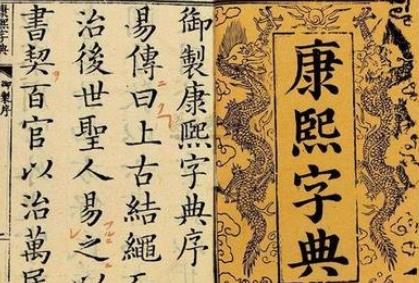 康熙字典
御製康熙字典序
易傳曰上古結繩而
治後世聖人易之以
書契百官以治萬民
康熙字典
御製序